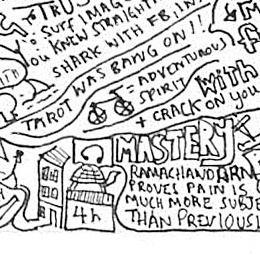 TRUS
: SURF IMAG
OU KNEW STRAIGHT
SHARK WITH FB, IN
TAROT WAS BANG ON!!
= ADVENTUROUS
SPIRIT
with
+ CRACK ON YOU
MASTERY
RAMACHAND RAN
PROVES PAIN IS
MUCH MORE SUBJE
THAN PREVIOUSL
4h